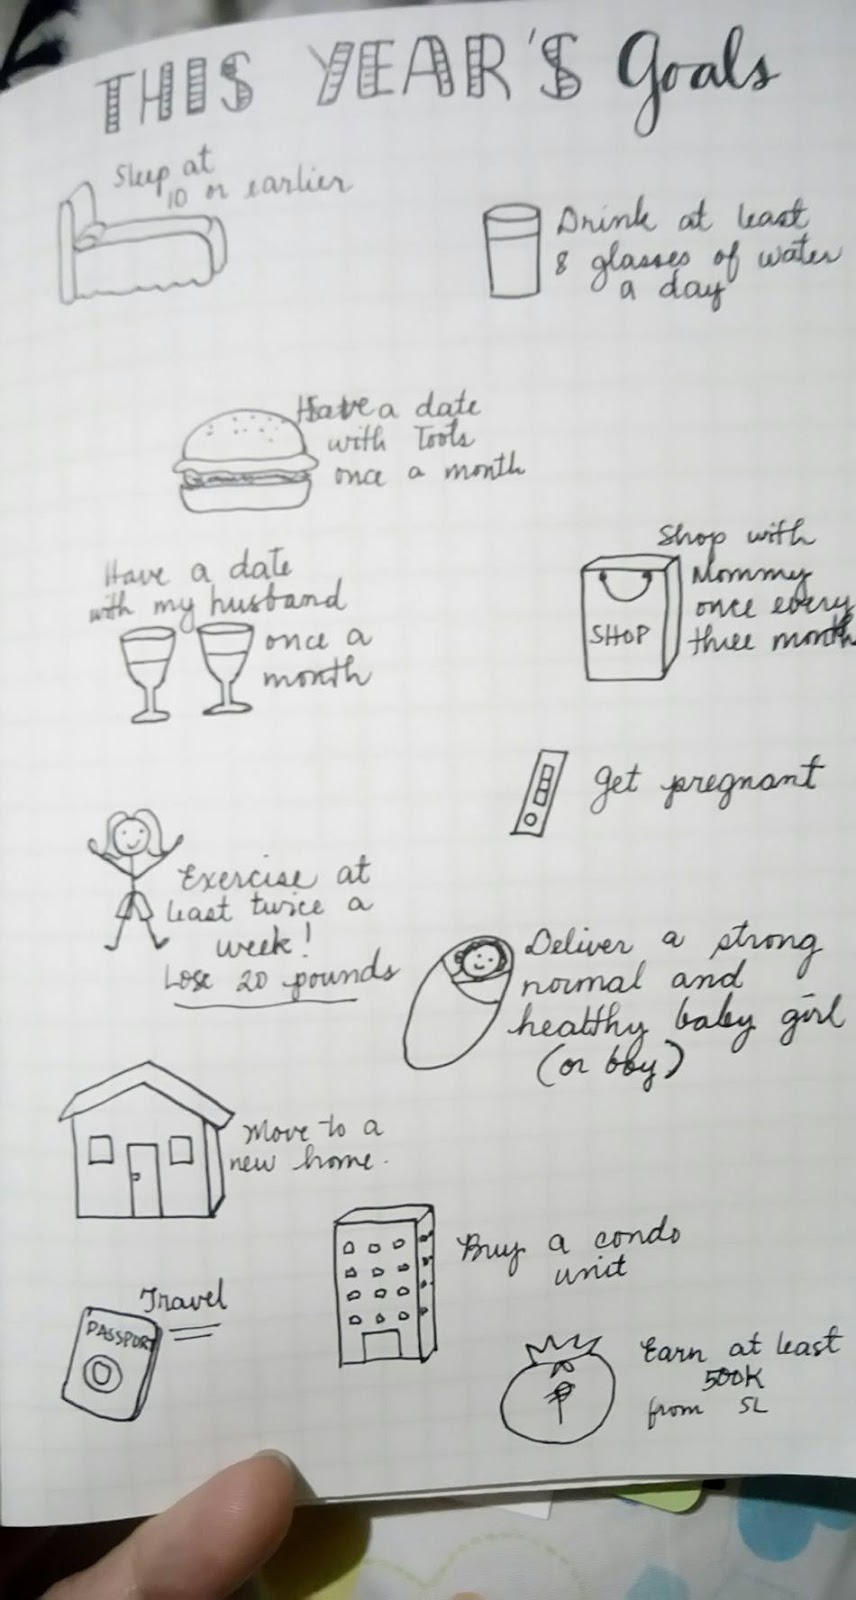 THIS YEAR'S Goals
Sleep at
10 or earlier
Drink at least
8 glasses of water
a day
Have a date
with Toots
once a month
Have a date
with my husband
once a
month
Shop with
Mommy
once every
three month
SHOP
Get pregnant
Exercise at
least twice a
week!
Lose 20 pounds
Deliver a strong
normal and
healthy baby girl
(or boy)
Move to a
new home.
Buy a condo
unit
Travel
PASSPORT
Earn at least
500K
from SL